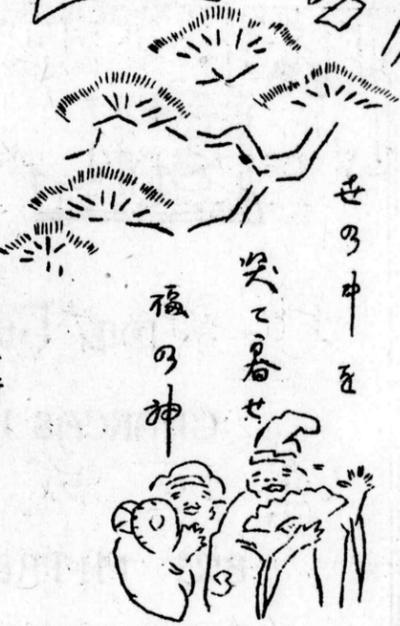 世の中を
笑て暮せ
福の神